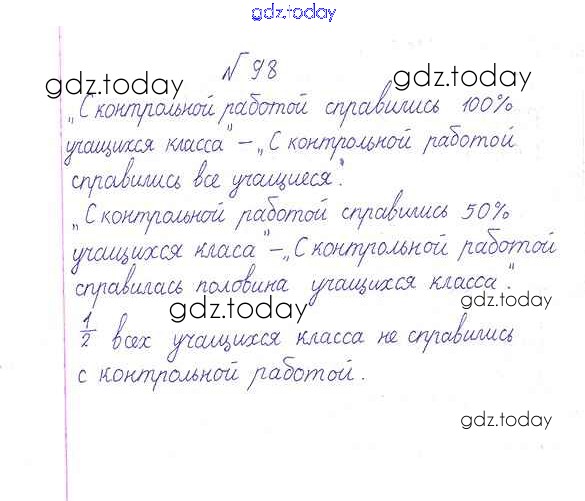 gdz.today
№ 98
gdz.today gdz.today
„С контрольной работой справились 100%
учащихся класса" – „С контрольной работой
справились все учащиеся".
„С контрольной работой справились 50%
учащихся класа" – „С контрольной работой
справилась половина учащихся класса".
gdz.today
gdz.today
1/2 всех учащихся класса не справились
с контрольной работой.
gdz.today